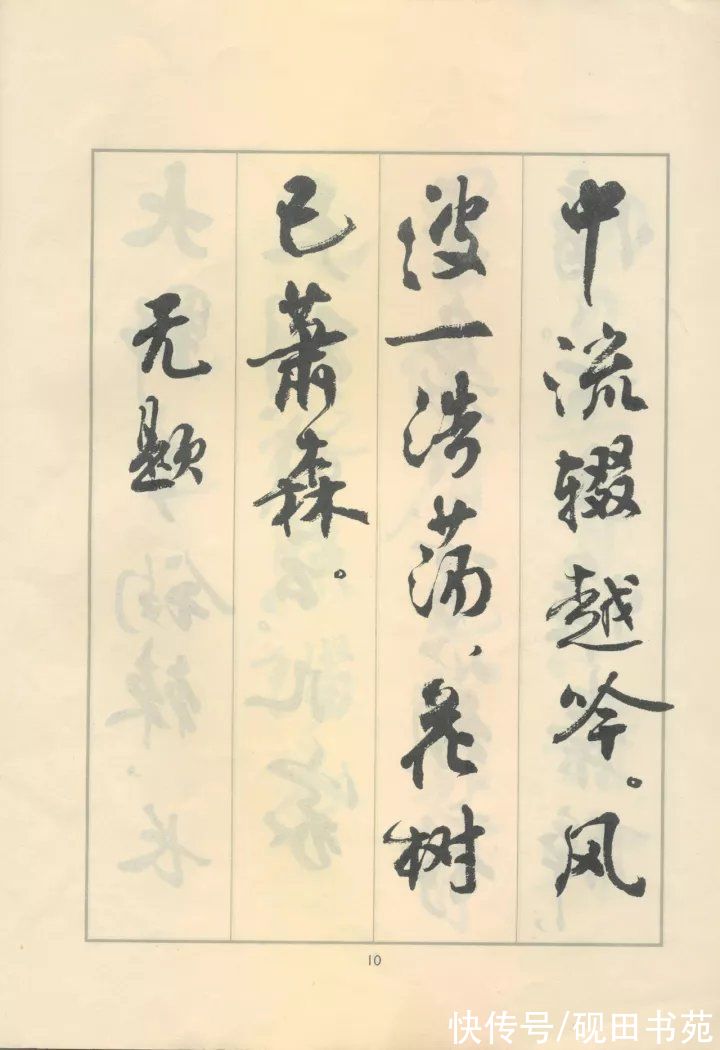 中流辍越吟。风
波一浩荡，花树
已萧森。
无题
10
快传号/砚田书苑